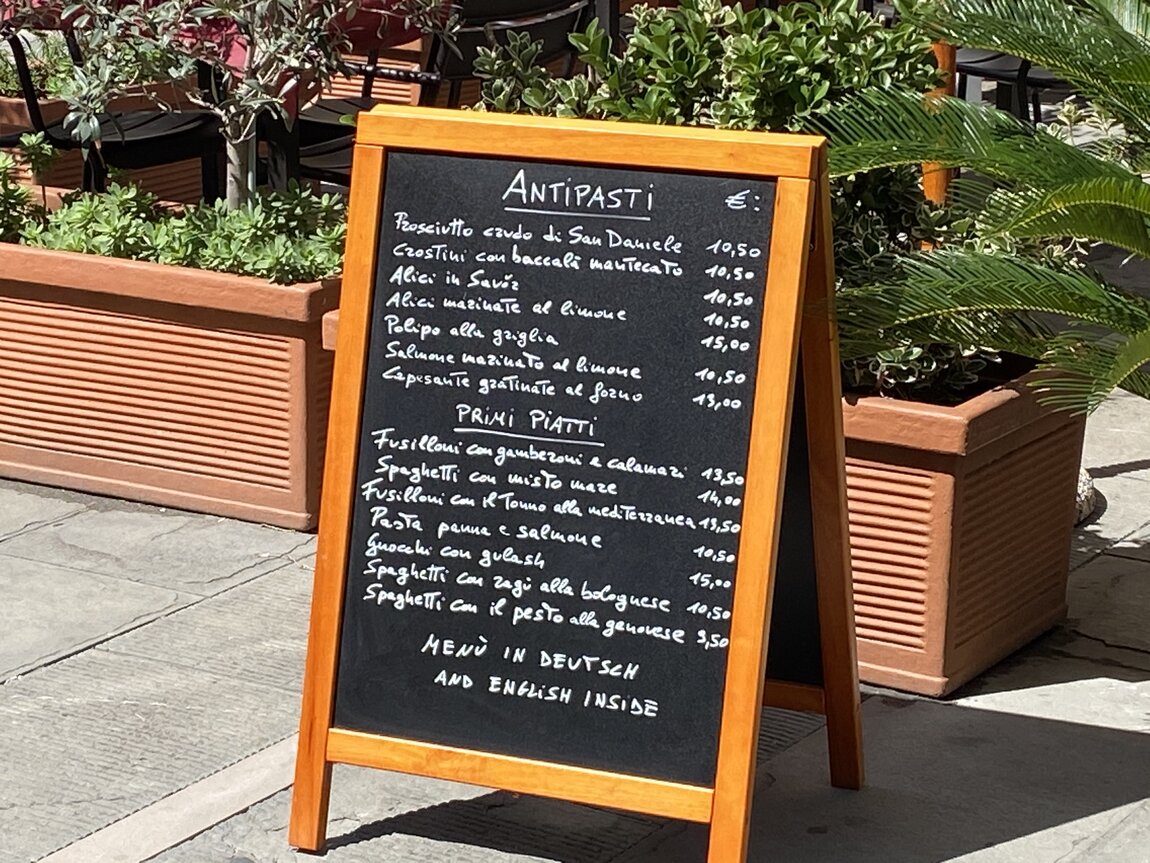 ANTIPASTI €:
Prosciutto crudo di San Daniele 10,50
Crostini con baccalà mantecato 10,50
Alici in Savór 10,50
Alici marinate al limone 10,50
Polipo alla griglia 15,00
Salmone marinato al limone 10,50
Capesante gratinate al forno 13,00
PRIMI PIATTI
Fusilloni con gamberoni e calamari 13,50
Spaghetti con misto mare 14,00
Fusilloni con il Tonno alla mediterranea 13,50
Pasta panna e salmone 10,50
Gnocchi con gulash 15,00
Spaghetti con ragù alla bolognese 10,50
Spaghetti con il pesto alla genovese 9,50
MENÙ IN DEUTSCH
AND ENGLISH INSIDE